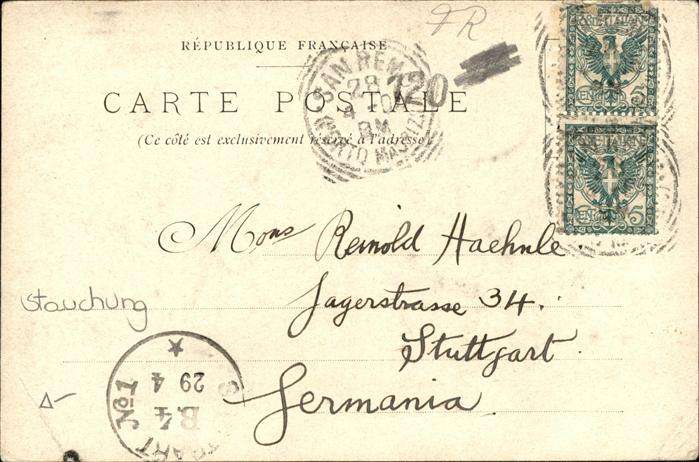 FR
RÉPUBLIQUE FRANÇAISE
CARTE POSTALE
(Ce côté est exclusivement réservé à l'adresse)
SAN REMO
28
4
8M
(PORTO MAURIZIO)
120
5
CENT
5
CENT
Mons Reinold Haehnle
Jagerstrasse 34.
Stuttgart
Germania
Stauchung
No 1
B4
29 4